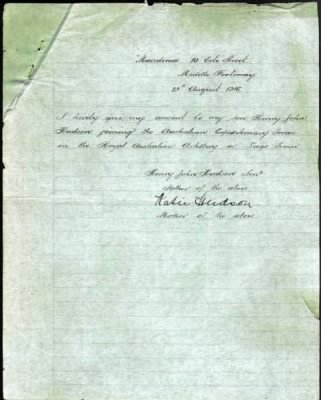 "Macedonia" 10 Eile Street
Middle Footscray
28th August 1916
I hereby give my consent to my son Henry John
Hudson joining the Australian Expeditionary Force
in the Royal Australian Artillery or Seige
Henry John Hudson Senr
Father of the above
Katie Hudson
Mother of the above